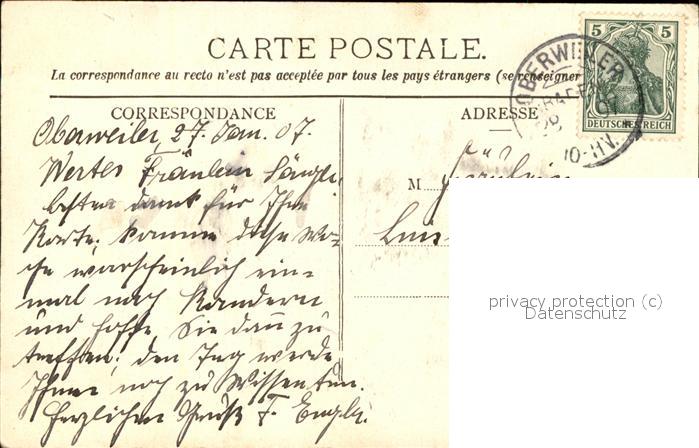 CARTE POSTALE.
La correspondance au recto n'est pas acceptée par tous les pays étrangers (se renseigner
CORRESPONDANCE
ADRESSE
5 5
DEUTSCHES REICH
OBERWEILER
10-11V.
Oberweiler, 27. Jan. 07.
Wertes Fräulein
besten dank für Ihre
Karte, komme diese Wo-
che warscheinlich ein-
mal nach Kandern
und hoffe Sie dan zu
treffen; den Tag werde
Ihnen noch zu Wissen tun.
Herzlichen Gruß F.
M Fräulein
privacy protection (c)
Datenschutz